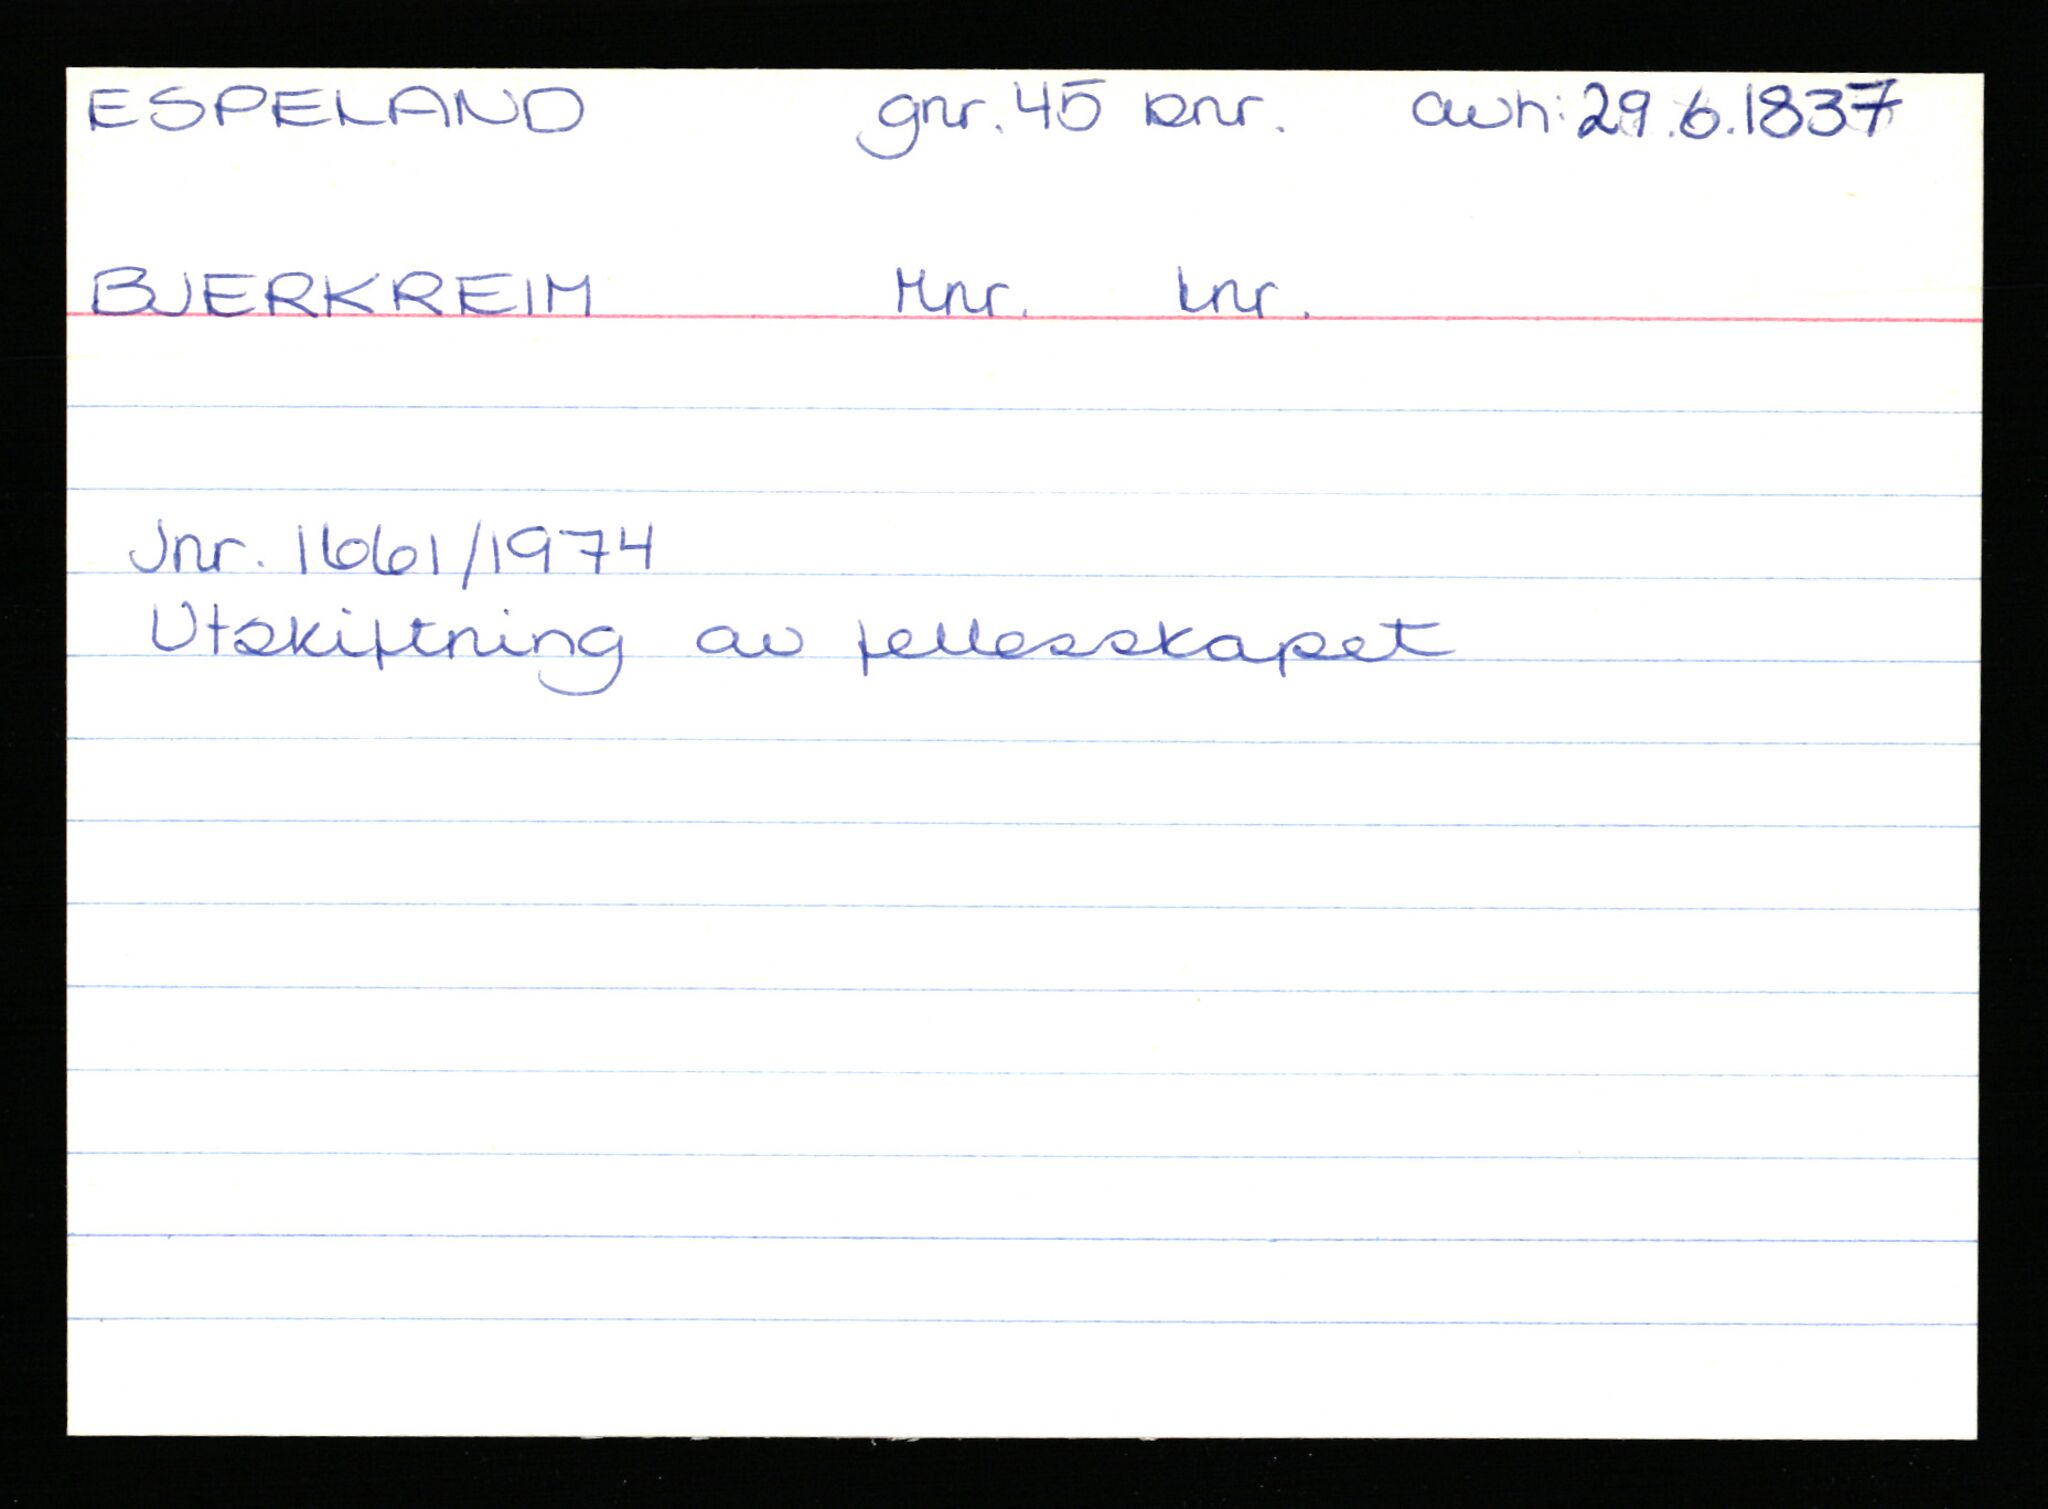 ESPELAND gnr. 45 bnr. avh: 29.6.1837
BJERKREIM Mnr. Lnr.
Jnr. 1661/1974
Utskiftning av fellesskapet